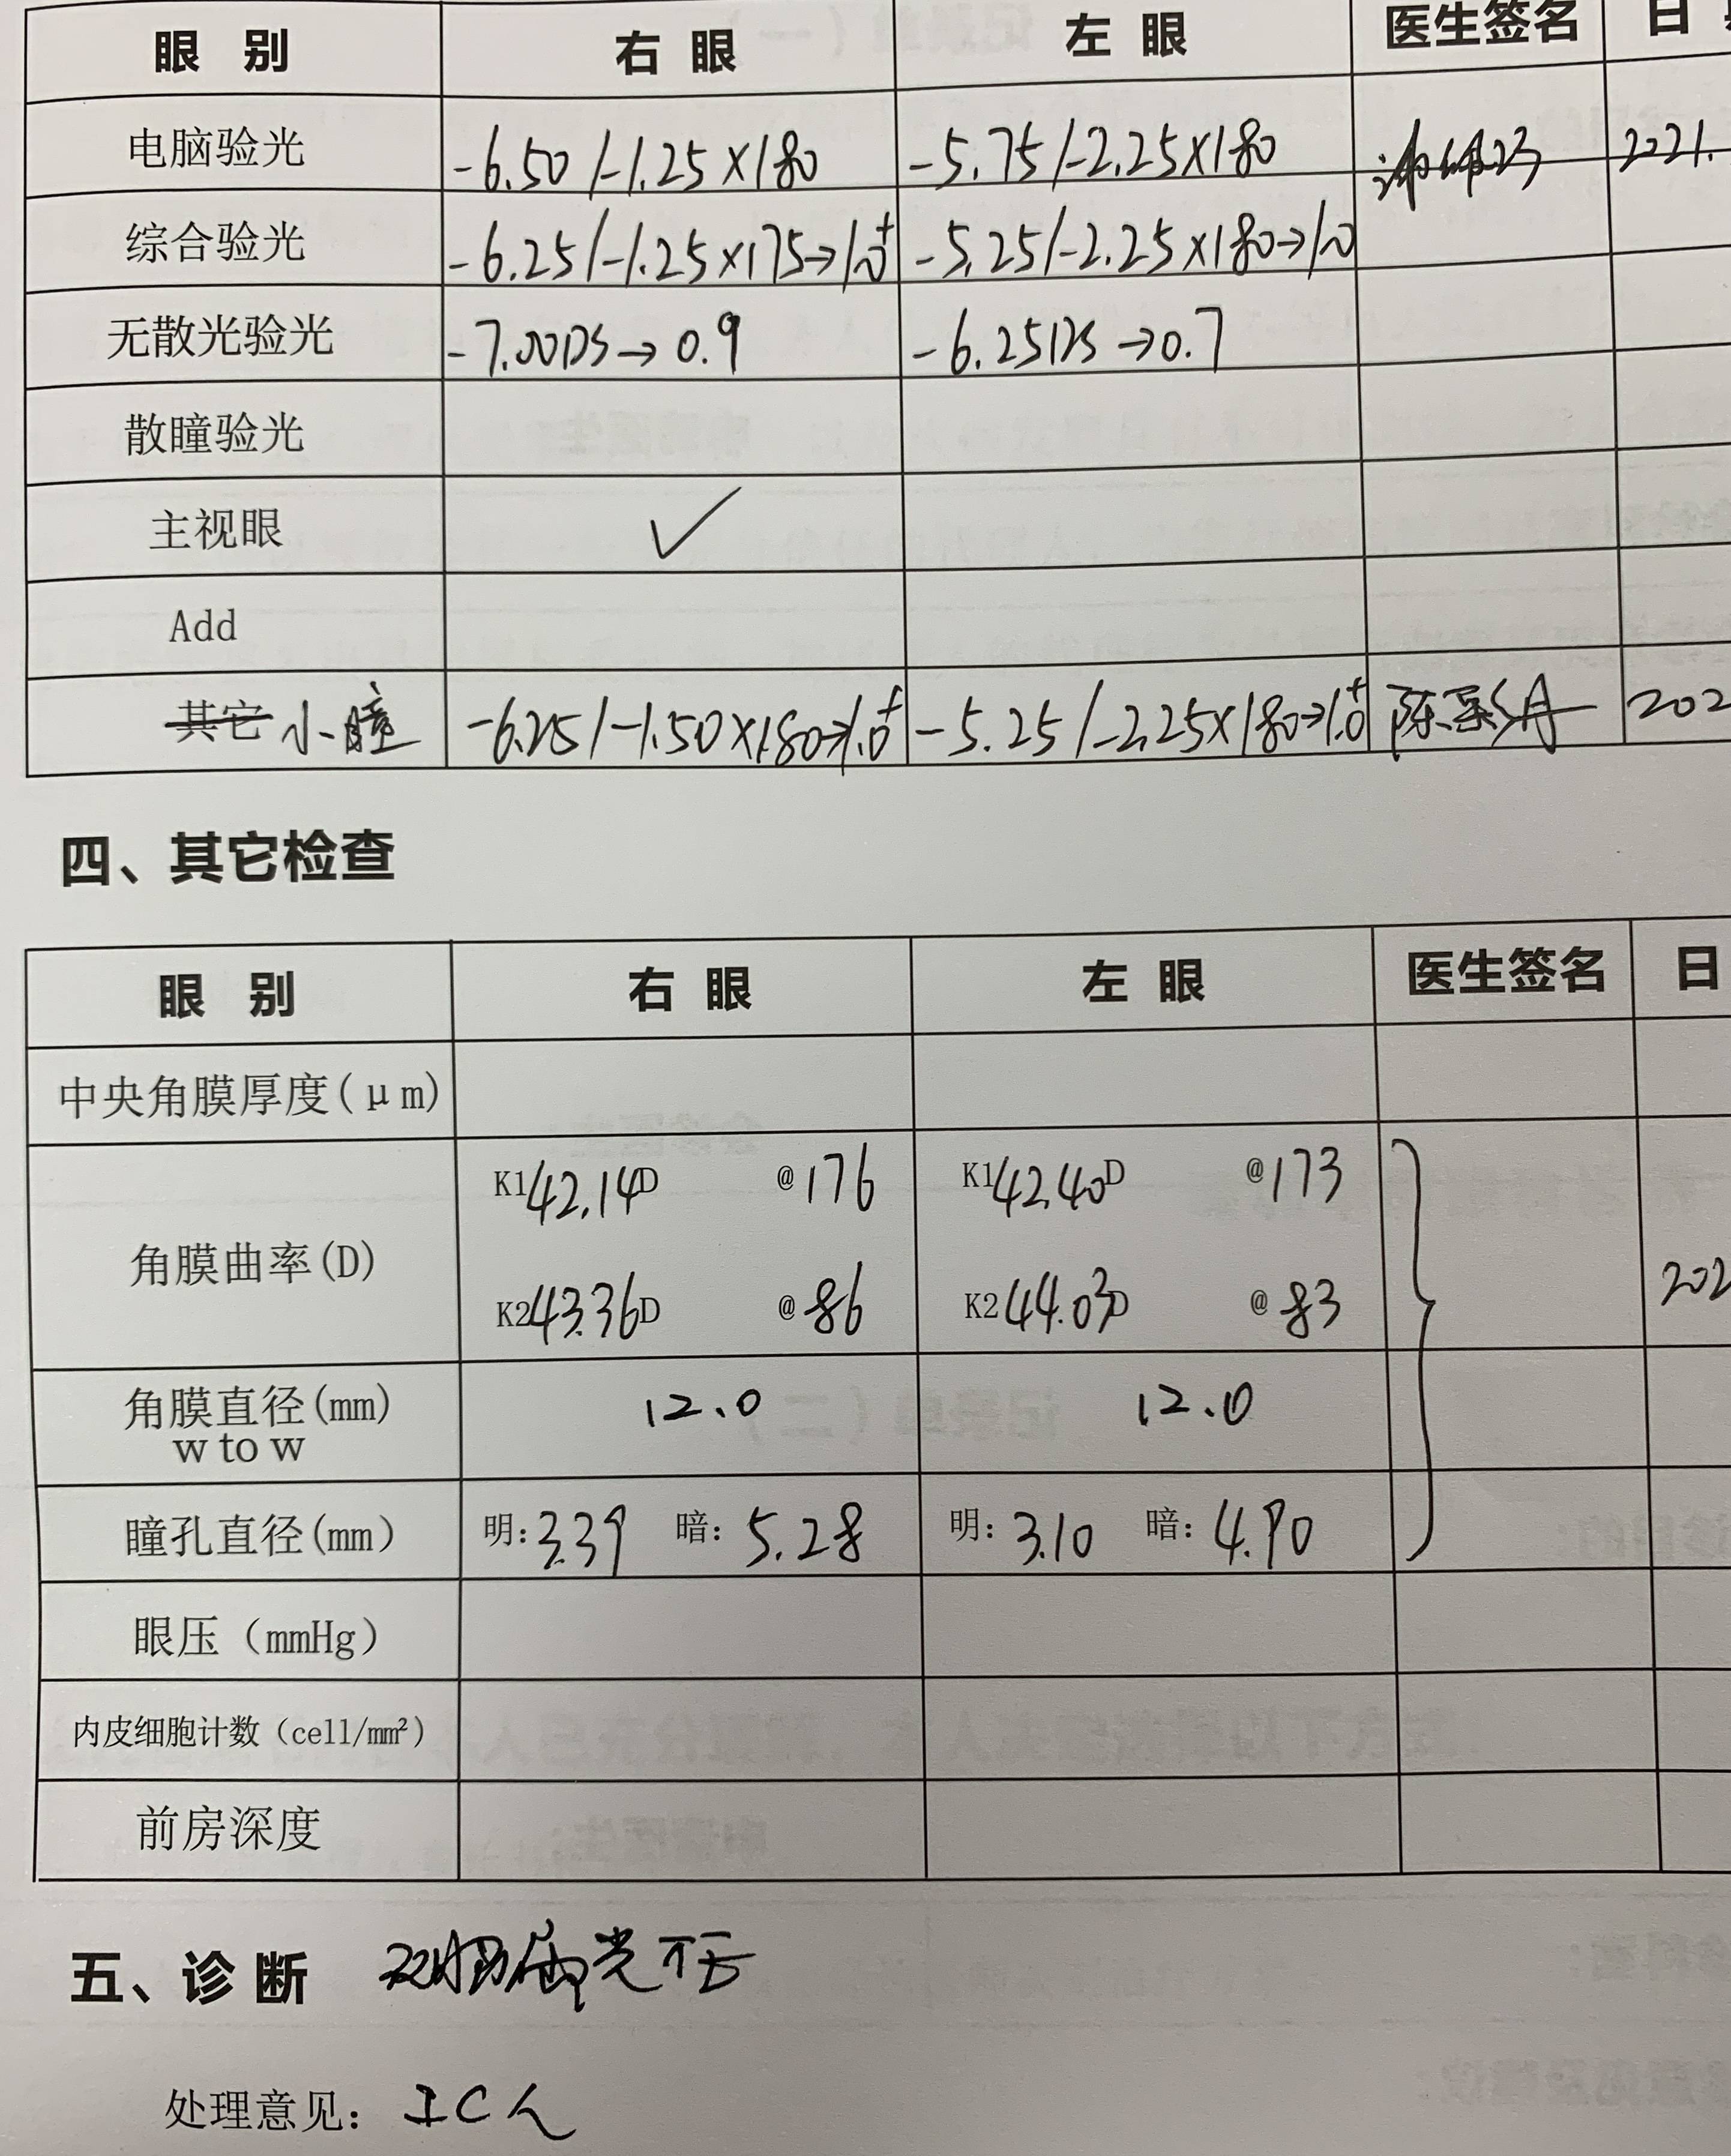 眼 别 右 眼 左 眼 医生签名 日
电脑验光 -6.50/-1.25×180 -5.75/-2.25×180 2021.
综合验光 -6.25/-1.25×175→1.0⁺ -5.25/-2.25×180→1.0
无散光验光 -7.00DS→0.9 -6.25DS→0.7
散瞳验光
主视眼 ✓
Add
其它 小瞳 -6.25/-1.50×180→1.0⁺ -5.25/-2.25×180→1.0⁺ 202
四、其它检查
眼 别 右 眼 左 眼 医生签名 日
中央角膜厚度(μm)
K1 42.14D @176 K1 42.40D @173
角膜曲率(D) 202
K2 43.36D @86 K2 44.03D @83
角膜直径(mm) 12.0 12.0
w to w
瞳孔直径(mm) 明:3.39 暗:5.28 明:3.10 暗:4.90
眼压(mmHg)
内皮细胞计数(cell/mm²)
前房深度
五、诊断 双眼屈光不正
处理意见: ICL